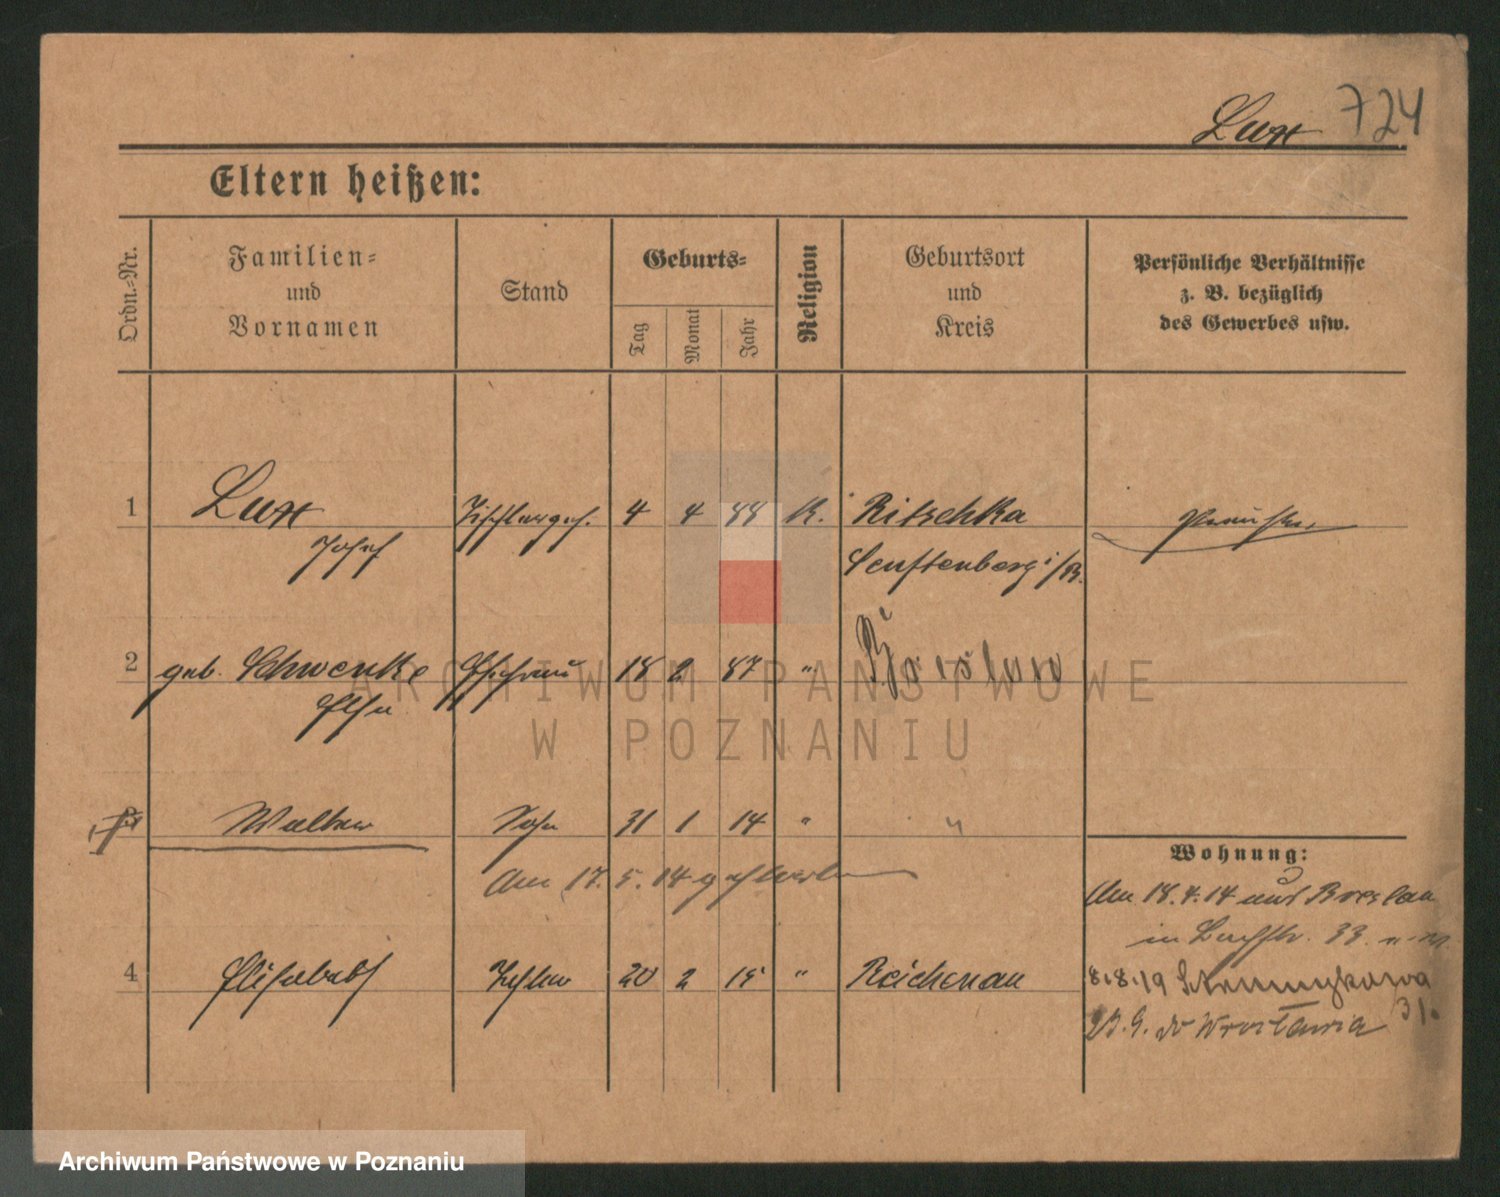 Lux 724
Eltern heißen:
Ordn.-Nr.
Familien-
und
Vornamen
Stand
Geburts-
Tag
Monat
Jahr
Religion
Geburtsort
und
Kreis
Persönliche Verhältnisse
z. B. bezüglich
des Gewerbes usw.
1 Lux Tischlerges. 4 4 88 K. Ritschka
Josef Senftenberg i/B.
2 geb. Schwenke Ehefrau 18 2 87 " Breslau
Else
3 Walter Sohn 31 1 14 " "
Am 17. 5. 14 gestorben
Wohnung:
Am 18.4.14 aus Breslau
in 33
4 Elisabeth Tochter 20 2 15 " Reichenau
8.8.19
31.
9. do Wrocławia
ARCHIWUM PAŃSTWOWE
W POZNANIU
Archiwum Państwowe w Poznaniu